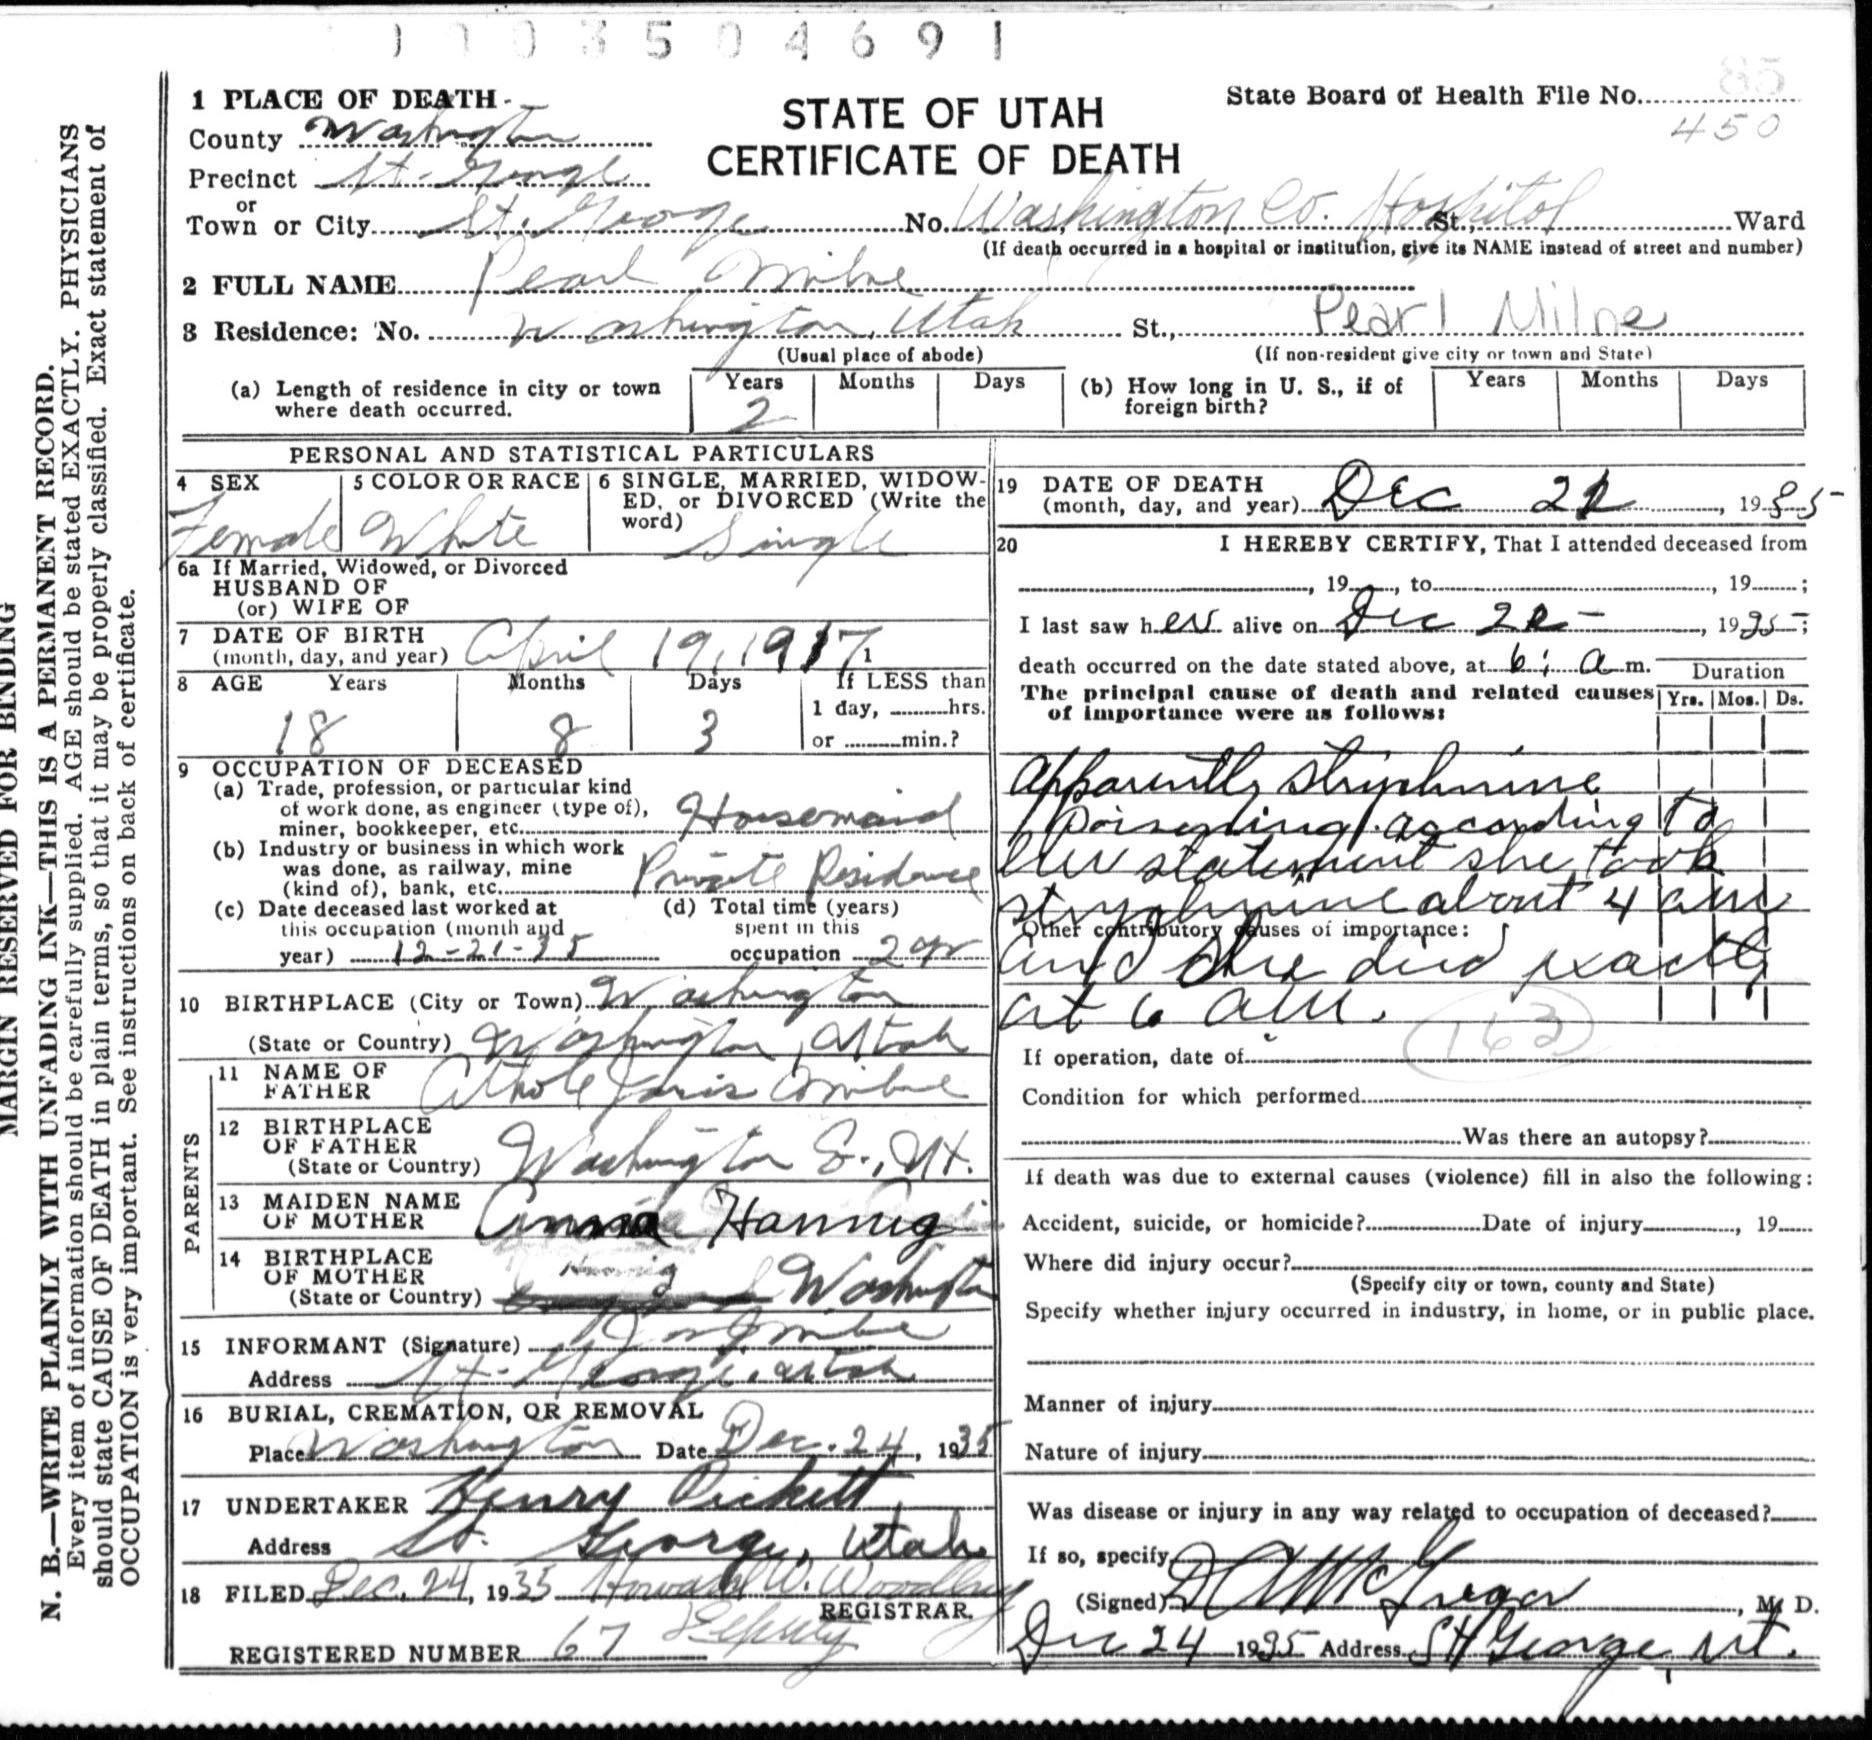 1003504691
1 PLACE OF DEATH
County Washington
Precinct St. George
or
Town or City St. George No. Washington Co. Hospital St., Ward
(If death occurred in a hospital or institution, give its NAME instead of street and number)
STATE OF UTAH
CERTIFICATE OF DEATH
State Board of Health File No. 85
450
2 FULL NAME Pearl Milne
3 Residence: No. Washington, Utah St., Pearl Milne
(Usual place of abode) (If non-resident give city or town and State)
(a) Length of residence in city or town where death occurred. Years 2 Months Days
(b) How long in U. S., if of foreign birth? Years Months Days
PERSONAL AND STATISTICAL PARTICULARS
4 SEX Female
5 COLOR OR RACE White
6 SINGLE, MARRIED, WIDOW-
ED, or DIVORCED (Write the
word) Single
6a If Married, Widowed, or Divorced
HUSBAND OF
(or) WIFE OF
7 DATE OF BIRTH
(month, day, and year) April 19, 1917
8 AGE Years 18 Months 8 Days 3 If LESS than
1 day, hrs.
or min.?
9 OCCUPATION OF DECEASED
(a) Trade, profession, or particular kind
of work done, as engineer (type of),
miner, bookkeeper, etc. Housemaid
(b) Industry or business in which work
was done, as railway, mine
(kind of), bank, etc. Private Residence
(c) Date deceased last worked at
this occupation (month and
year) 12-21-35
(d) Total time (years)
spent in this
occupation 2 yr
10 BIRTHPLACE (City or Town) Washington
(State or Country) Washington, Utah
PARENTS
11 NAME OF
FATHER Athole Jarvis Milne
12 BIRTHPLACE
OF FATHER
(State or Country) Washington Co., Ut.
13 MAIDEN NAME
OF MOTHER Annie Hannig
14 BIRTHPLACE
OF MOTHER
(State or Country) Hannig Washington
15 INFORMANT (Signature) Milne
Address St. George, Utah
16 BURIAL, CREMATION, OR REMOVAL
Place Washington Date Dec. 24, 1935
17 UNDERTAKER Henry Pickett
Address St. George, Utah
18 FILED Dec. 24, 1935 Howard W. Woodbury
REGISTRAR.
Deputy
REGISTERED NUMBER 67
19 DATE OF DEATH
(month, day, and year) Dec 22, 1935
20 I HEREBY CERTIFY, That I attended deceased from
, 19 , to , 19 ;
I last saw her alive on Dec 22, 1935;
death occurred on the date stated above, at 6: a m.
The principal cause of death and related causes
of importance were as follows:
Duration
Yrs. Mos. Ds.
Apparently strychnine
Poisoning. according to
her statement she took
strychnine about 4 am
Other contributory causes of importance:
and she died exactly
at 6 am.
163
If operation, date of
Condition for which performed
Was there an autopsy?
If death was due to external causes (violence) fill in also the following:
Accident, suicide, or homicide? Date of injury , 19
Where did injury occur?
(Specify city or town, county and State)
Specify whether injury occurred in industry, in home, or in public place.
Manner of injury
Nature of injury
Was disease or injury in any way related to occupation of deceased?
If so, specify
(Signed) D A McGregor, M. D.
Dec 24 1935 Address St George, Ut.
MARGIN RESERVED FOR BINDING
N. B.—WRITE PLAINLY WITH UNFADING INK—THIS IS A PERMANENT RECORD.
Every item of information should be carefully supplied. AGE should be stated EXACTLY. PHYSICIANS
should state CAUSE OF DEATH in plain terms, so that it may be properly classified. Exact statement of
OCCUPATION is very important. See instructions on back of certificate.